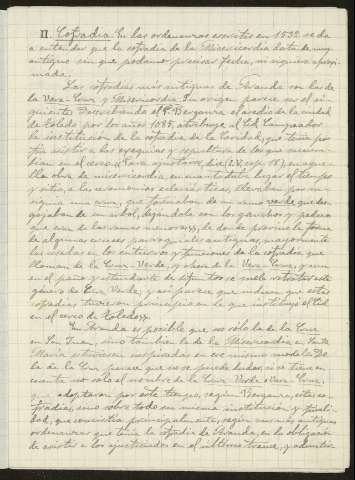 II. Cofradía. En las ordenanzas escritas en 1532 se da
a entender que la cofradía de la Misericordia data de muy
antiguo sin que podamos precisar fecha, ni siquiera aproxi-
mada.
Las cofradías más antiguas de Aranda son las de
la Vera-Cruz y Misericordia. Su origen parece ser el si-
guiente: Describiendo el P. Berganza el asedio de la ciudad
de Toledo por los años 1085, atribuye al Cid Campeador
la institución de la cofradía de la Caridad, que tenía por
fin asistir a las exequias y sepultura de los que
en el cerco. "Para ajustarse, dice en aque-
lla obra de misericordia, en cuanto daba lugar el tiempo
y sitio, a las ceremonias eclesiásticas, llevaban por in-
signia una cruz, que formaban de un ramo verde que des-
gajaban de un árbol, dejándola con los ganchos y
que eran de las ramas menores, de donde proviene la forma
de algunas cruces parroquiales antiguas, mayormente
las usadas en los entierros y funciones de la cofradía que
llaman de la Cruz-Verde, y ahora de la Vera-Cruz, y aun
en el paño y estandarte de difuntos se suele retratar este
género de Cruz Verde, y así parece que pudieron que estas
cofradías tuvieron principio en la que instituyó el Cid
en el cerco de Toledo".
En Aranda es posible que no sólo la de la Cruz
en San Juan, sino también la de la Misericordia en Santa
María estuvieran inspiradas en ese mismo modelo. De
la de la Cruz parece que no se puede dudar, si se tiene en
cuenta no sólo el nombre de la Cruz Verde o Vera-Cruz,
que adoptaron por este tiempo, según Berganza, estas co-
fradías, sino sobre todo su misma institución y finali-
dad, que consistía principalmente, según sus más antiguas
ordenanzas que tenía la cofradía de Aranda, en la obligación
de asistir a los ajusticiados en el último trance, y